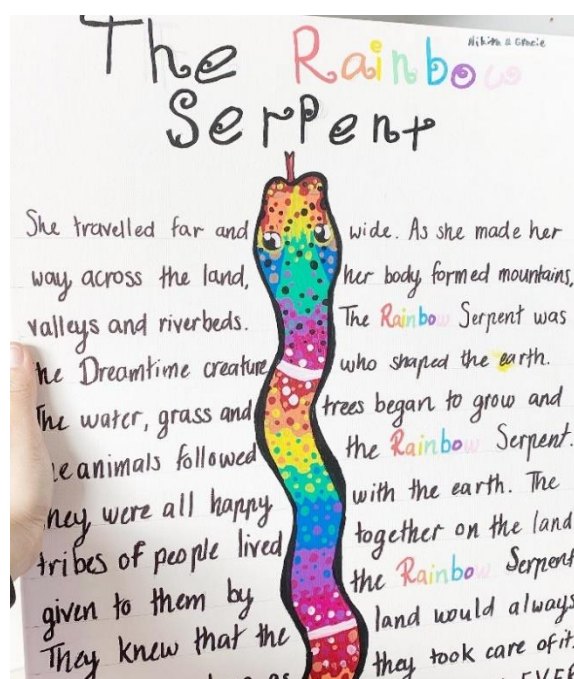 The Rainbow
Serpent
She travelled far and wide. As she made her
way across the land, her body formed mountains,
valleys and riverbeds. The Rainbow Serpent was
he Dreamtime creature who shaped the earth.
The water, grass and trees began to grow and
animals followed the Rainbow Serpent.
hey were all happy with the earth. The
tribes of people lived together on the land
given to them by the Rainbow Serpent
They knew that the land would always
they took care of it.
EVER